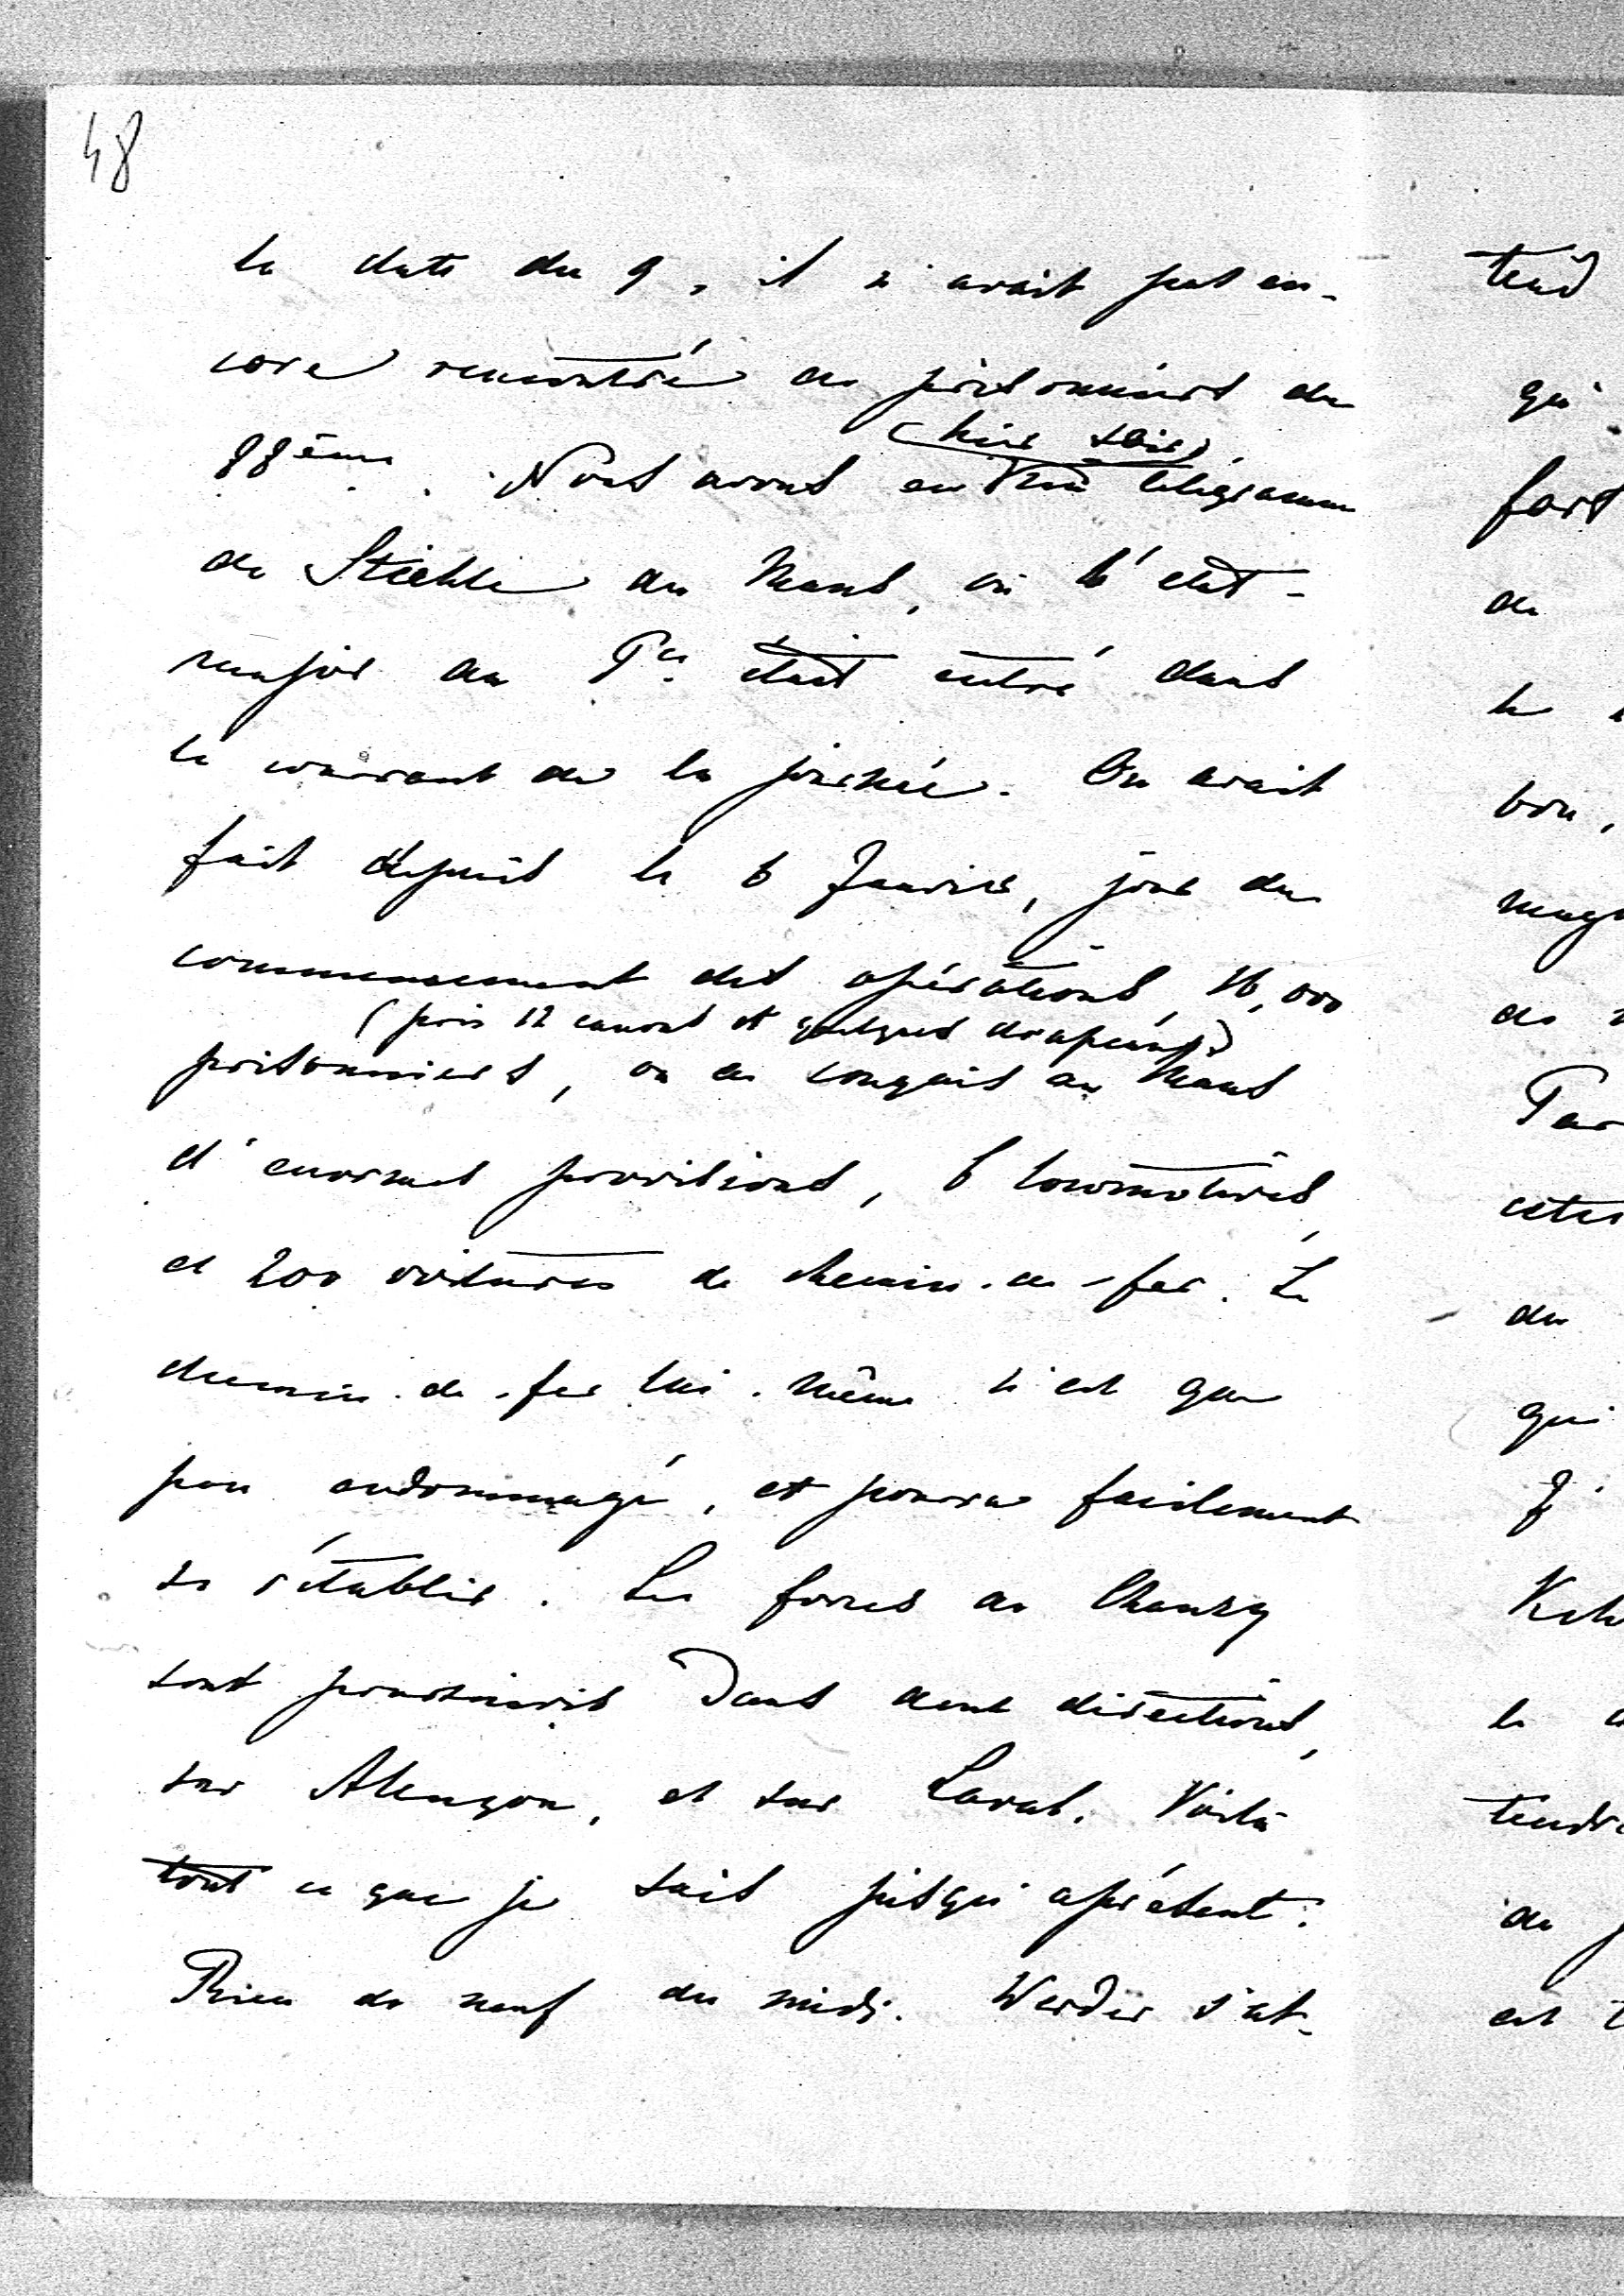 48
la date du 9, il n'avait pas en-
core rencontré de prisonniers du
88ème. Nous avons eu
(hier soir)
un télégramme
de Stiehle du Mans, où l'état-
major du Pce était entré dans
le courant de la journée. On avait
fait depuis le 6 Janvier, jour du
commencement des opérations, 16,000
(pris 12 canons et quelques drapeaux)
prisonniers, on a conquis au Mans
d'enormes provisions, 6 locomotives,
et 200 voitures de chemin-de-fer. Le
chemin-de-fer lui-même n'est que
peu endommagé, et pourra facilement
se rétablir. Les forces de Chanzy
sont poursuivis dans deux directions,
sur Alençon, et sur Laval. Voilà
tout ce que je sais jusqu'aprésent.
Rien de neuf du midi. Werder s'at-
tend
qu'
fort
de
le
bon,
de
Par
du
qui
J'
le
de
est